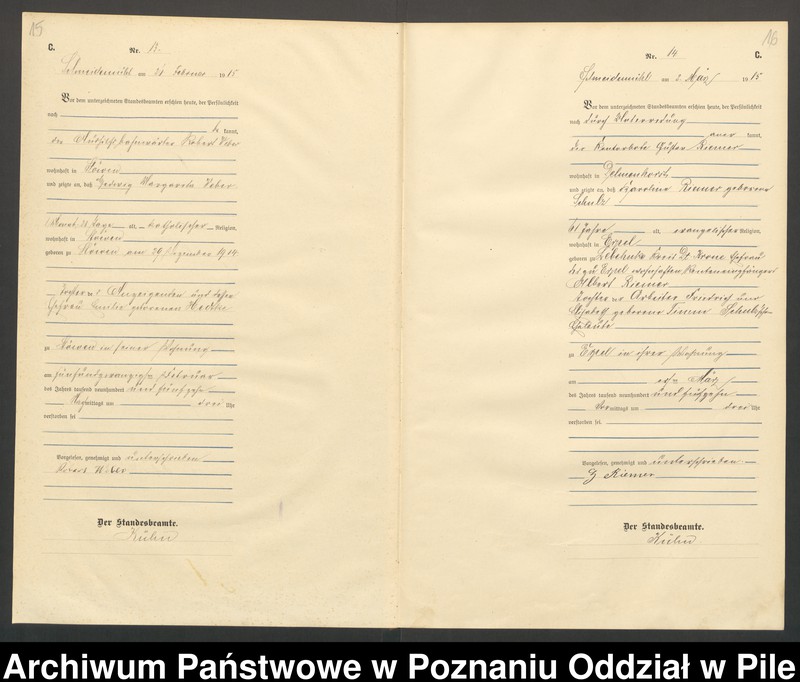 15
C.
Nr. 13.
Schneidemühl am 21 Februar 1915
Vor dem unterzeichneten Standesbeamten erschien heute, der Persönlichkeit
nach
be kannt,
der Robert Weber
wohnhaft in Stöwen
und zeigte an, daß Hedwig Margarete Weber
alt, Religion,
wohnhaft in Stöwen
geboren zu Stöwen am 29 Dezember 1914
Tochter des Anzeigenden und dessen
Ehefrau Emilie geborenen
zu Stöwen in seiner Wohnung
am Februar
des Jahres tausend neunhundert und fünfzehn
mittags um drei Uhr
verstorben sei
Vorgelesen, genehmigt und unterschrieben
Robert Weber
Der Standesbeamte.
Kühn
16
Nr. 14
C.
Schneidemühl am 2. März 1915
Vor dem unterzeichneten Standesbeamten erschien heute, der Persönlichkeit
nach durch Unterredung
aner kannt,
der Gustav Riemer
wohnhaft in Delmenhorst
und zeigte an, daß Karoline Riemer geborene
Schulz
Jahre alt, evangelischer Religion,
wohnhaft in Erpel
geboren zu Lebehnke Kreis Dt. Krone Ehefrau
des zu Erpel wohnhaften Rentenempfängers
Albert Riemer
Tochter der Arbeiter Friedrich und
geborene Timm Schulz'schen
Eheleute
zu Erpel in ihrer Wohnung
am März
des Jahres tausend neunhundert und fünfzehn
Vor mittags um drei Uhr
verstorben sei.
Vorgelesen, genehmigt und unterschrieben
G Riemer
Der Standesbeamte.
Kühn
Archiwum Państwowe w Poznaniu Oddział w Pile